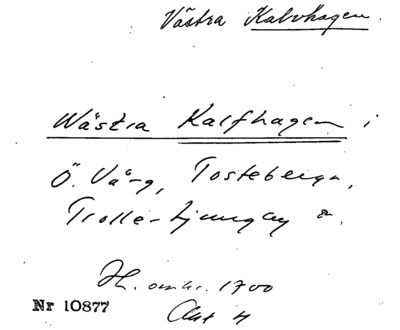 Västra Kalvhagen.
Wästra Kalfhagen i
Ö. Vång, Tosteberga,
Trolle-Ljungby
omkr. 1700
Nr 10877